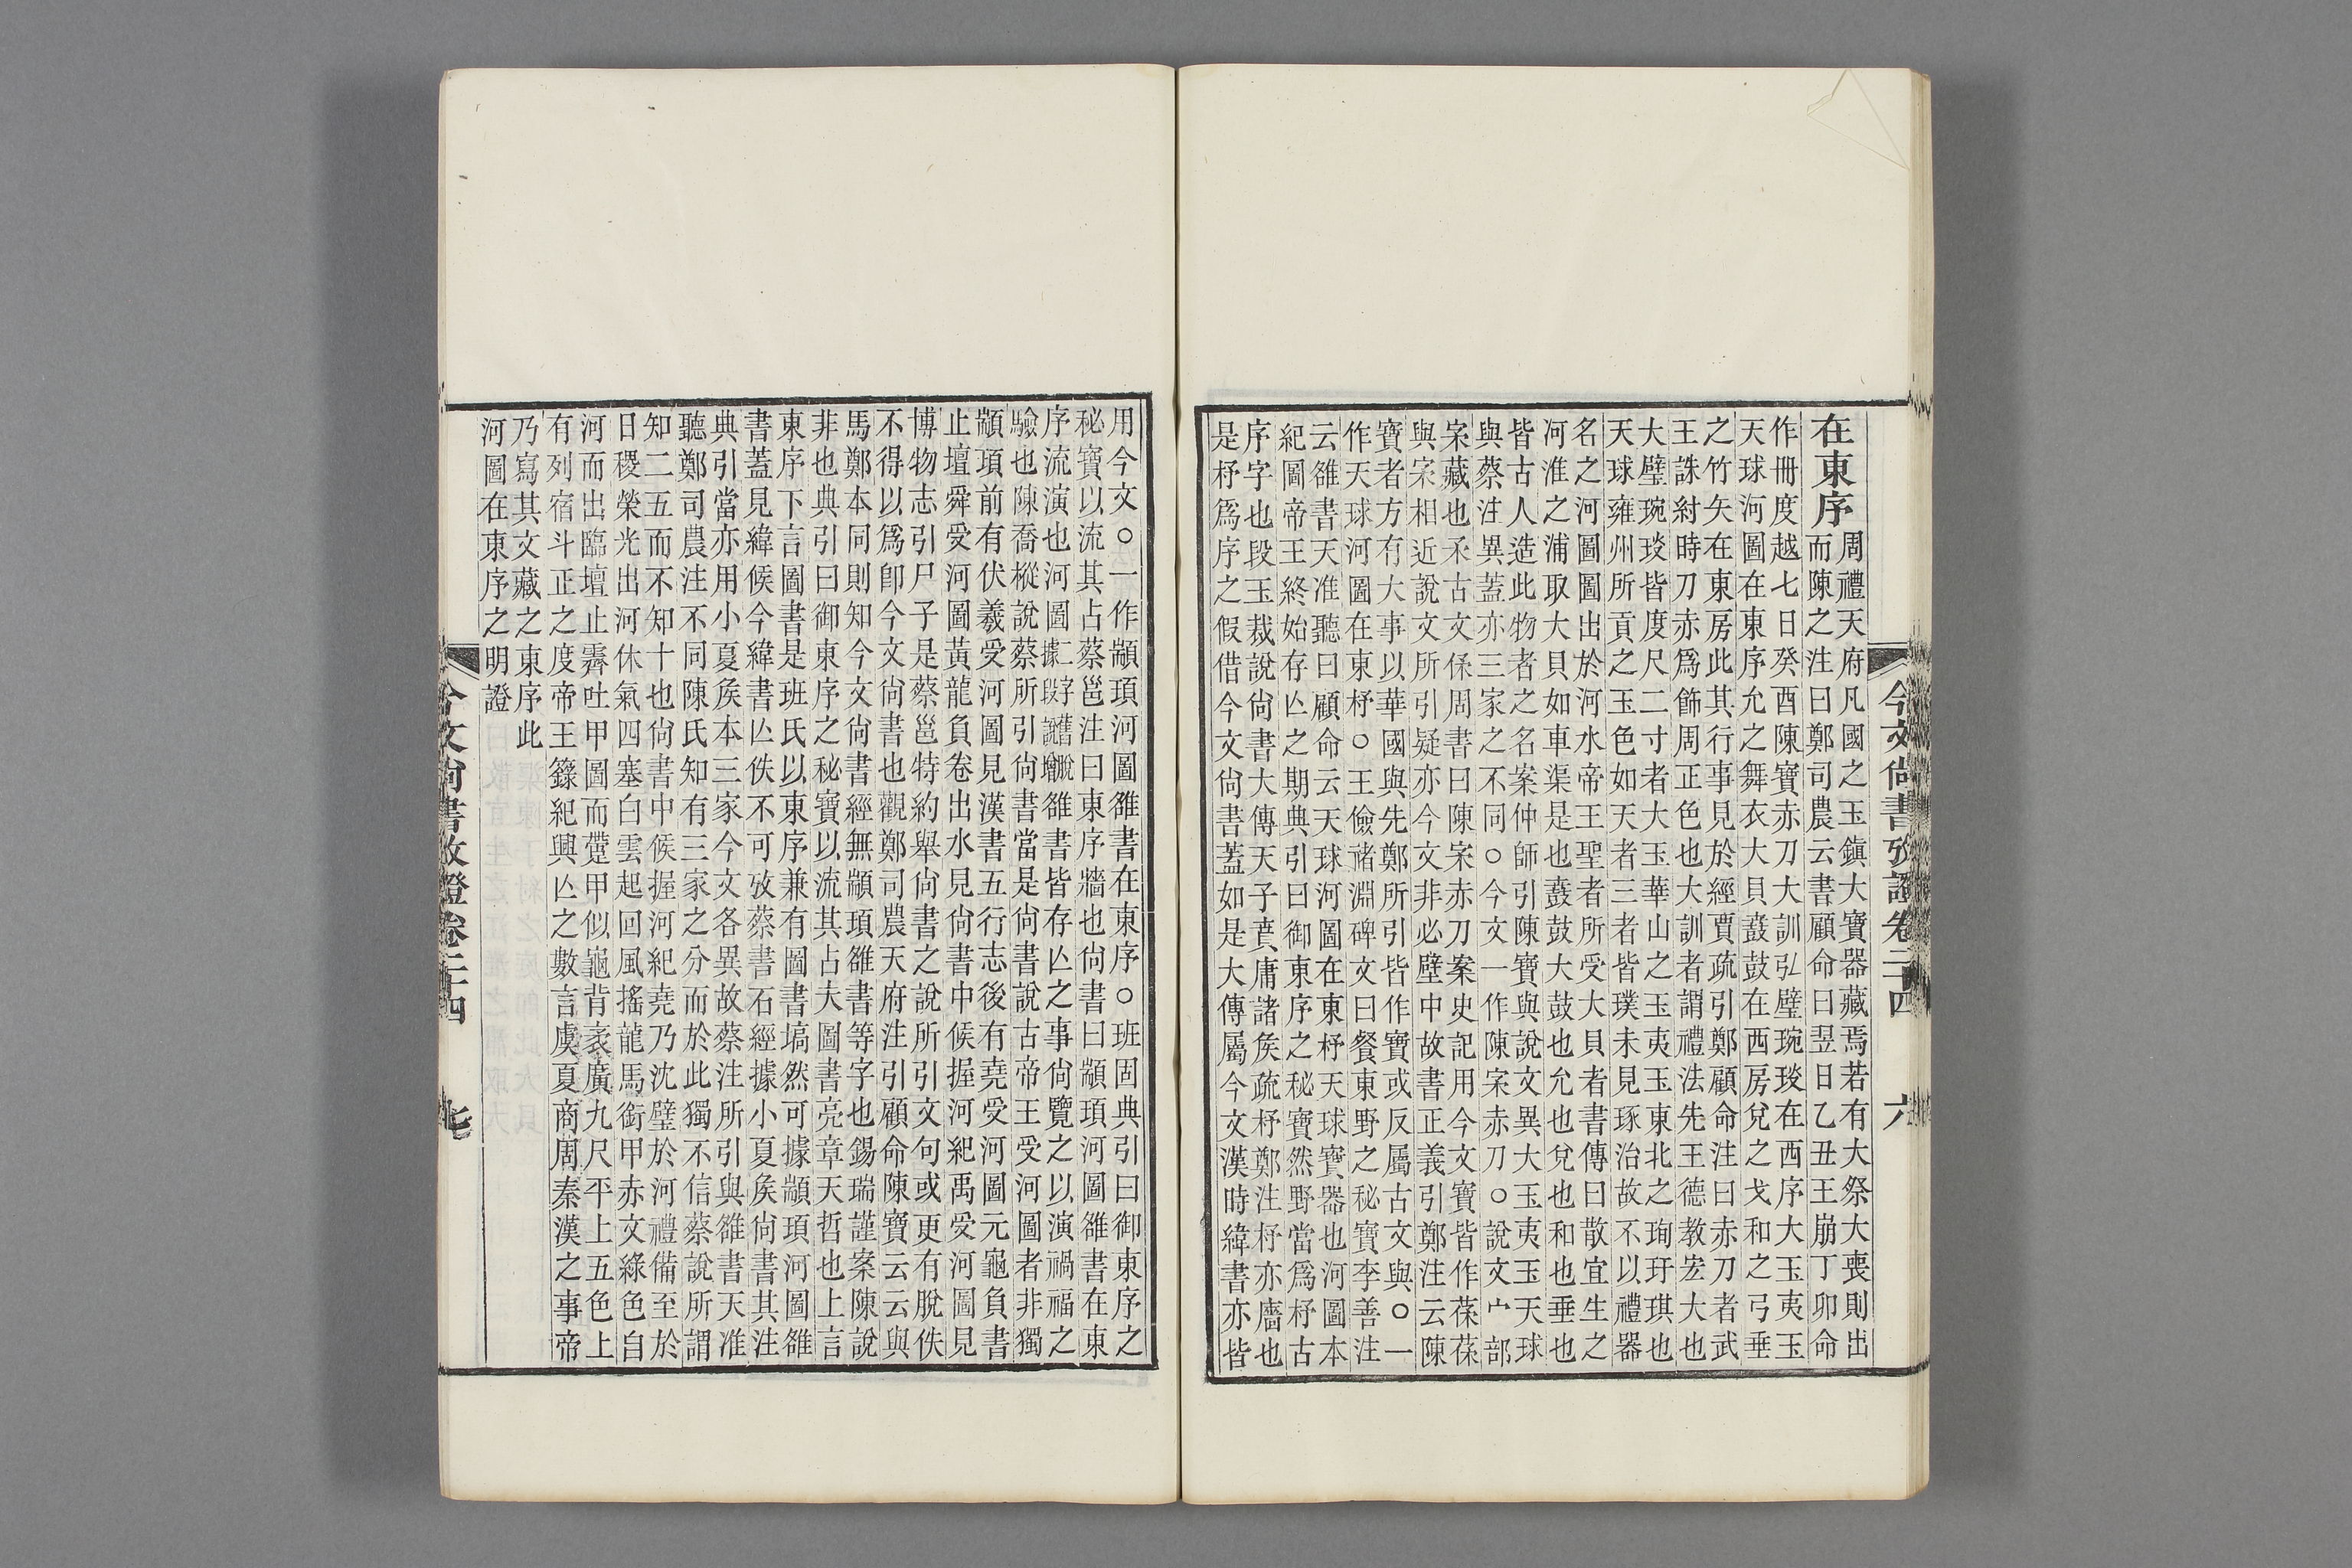 在東序
周禮天府凡國之玉鎮大寶器藏焉若有大祭大喪則出
而陳之注曰鄭司農云書顧命曰翌日乙丑王崩丁卯命
作冊度越七日癸酉陳寶赤刀大訓弘璧琬琰在西序大玉夷玉
天球河圖在東序允之舞衣大貝鼖鼓在西房兌之戈和之弓垂
之竹矢在東房此其行事見於經賈疏引鄭顧命注曰赤刀者武
王誅紂時刀赤爲飾周正色也大訓者謂禮法先王德教宏大也
大璧琬琰皆度尺二寸者大玉華山之玉夷玉東北之珣玗琪也
天球雍州所貢之玉色如天者三者皆璞未見琢治故不以禮器
名之河圖圖出於河水帝王聖者所受大貝者書傳曰散宜生之
河淮之浦取大貝如車渠是也鼖鼓大鼓也允也兌也和也垂也
皆古人造此物者之名案仲師引陳寶與說文異大玉夷玉天球
與蔡注異蓋亦三家之不同○今文一作陳宲赤刀○說文宀部
宲藏也禾古文保周書曰陳宲赤刀案史記用今文寶皆作葆葆
與宲相近說文所引疑亦今文非必壁中故書正義引鄭注云陳
寶者方有大事以華國與先鄭所引皆作寶或反屬古文與○一
作天球河圖在東杼○王儉褚淵碑文曰餐東野之秘寶李善注
云雒書天准聽曰顧命云天球河圖在東杼天球寶器也河圖本
紀圖帝王終始存亾之期典引曰御東序之秘寶然野當爲杼古
序字也段玉裁說尙書大傳天子賁庸諸矦疏杼鄭注杼亦廧也
是杼爲序之假借今文尙書蓋如是大傳屬今文漢時緯書亦皆
今文尙書攷證卷二十四
六
用今文○一作顓頊河圖雒書在東序○班固典引曰御東序之
秘寶以流其占蔡邕注曰東序牆也尙書曰顓頊河圖雒書在東
序流演也河圖據段說增二字舊脫雒書皆存亾之事尙覽之以演禍福之
驗也陳喬樅說蔡所引尙書當是尙書說古帝王受河圖者非獨
顓頊前有伏羲受河圖見漢書五行志後有堯受河圖元龜負書
止壇舜受河圖黃龍負卷出水見尙書中候握河紀禹受河圖見
博物志引尸子是蔡邕特約舉尙書之說所引文句或更有脫佚
不得以爲卽今文尙書也觀鄭司農天府注引顧命陳寶云云與
馬鄭本同則知今文尙書經無顓頊雒書等字也錫瑞謹案陳說
非也典引曰御東序之秘寶以流其占大圖書亮章天哲也上言
東序下言圖書是班氏以東序兼有圖書塙然可據顓頊河圖雒
書蓋見緯候今緯書亾佚不可攷蔡書石經據小夏矦尙書其注
典引當亦用小夏矦本三家今文各異故蔡注所引與雒書天准
聽鄭司農注不同陳氏知有三家之分而於此獨不信蔡說所謂
知二五而不知十也尙書中候握河紀堯乃沈璧於河禮備至於
日稷榮光出河休氣四塞白雲起回風搖龍馬銜甲赤文綠色自
河而出臨壇止霽吐甲圖而蹛甲似龜背袤廣九尺平上五色上
有列宿斗正之度帝王籙紀興亾之數言虞夏商周秦漢之事帝
乃寫其文藏之東序此
河圖在東序之明證
今文尙書攷證卷二十四
七